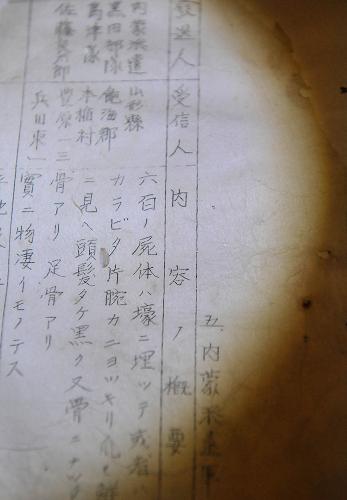 五、内蒙派遣軍
發送人 受信人 内容ノ概要
内蒙派遣
黒田部隊
島津隊
佐藤
山形縣
飽海郡
本楯村
豊原一三
兵田東一
六百ノ屍体ハ壕ニ埋ツテ或者ハ
カラビタ片腕カニヨツキリ爪も鮮
ニ見ヘ頭髪ダケ黒ク又骨ニナツタ
骨アリ 足骨アリ
實ニ物凄イモノテス